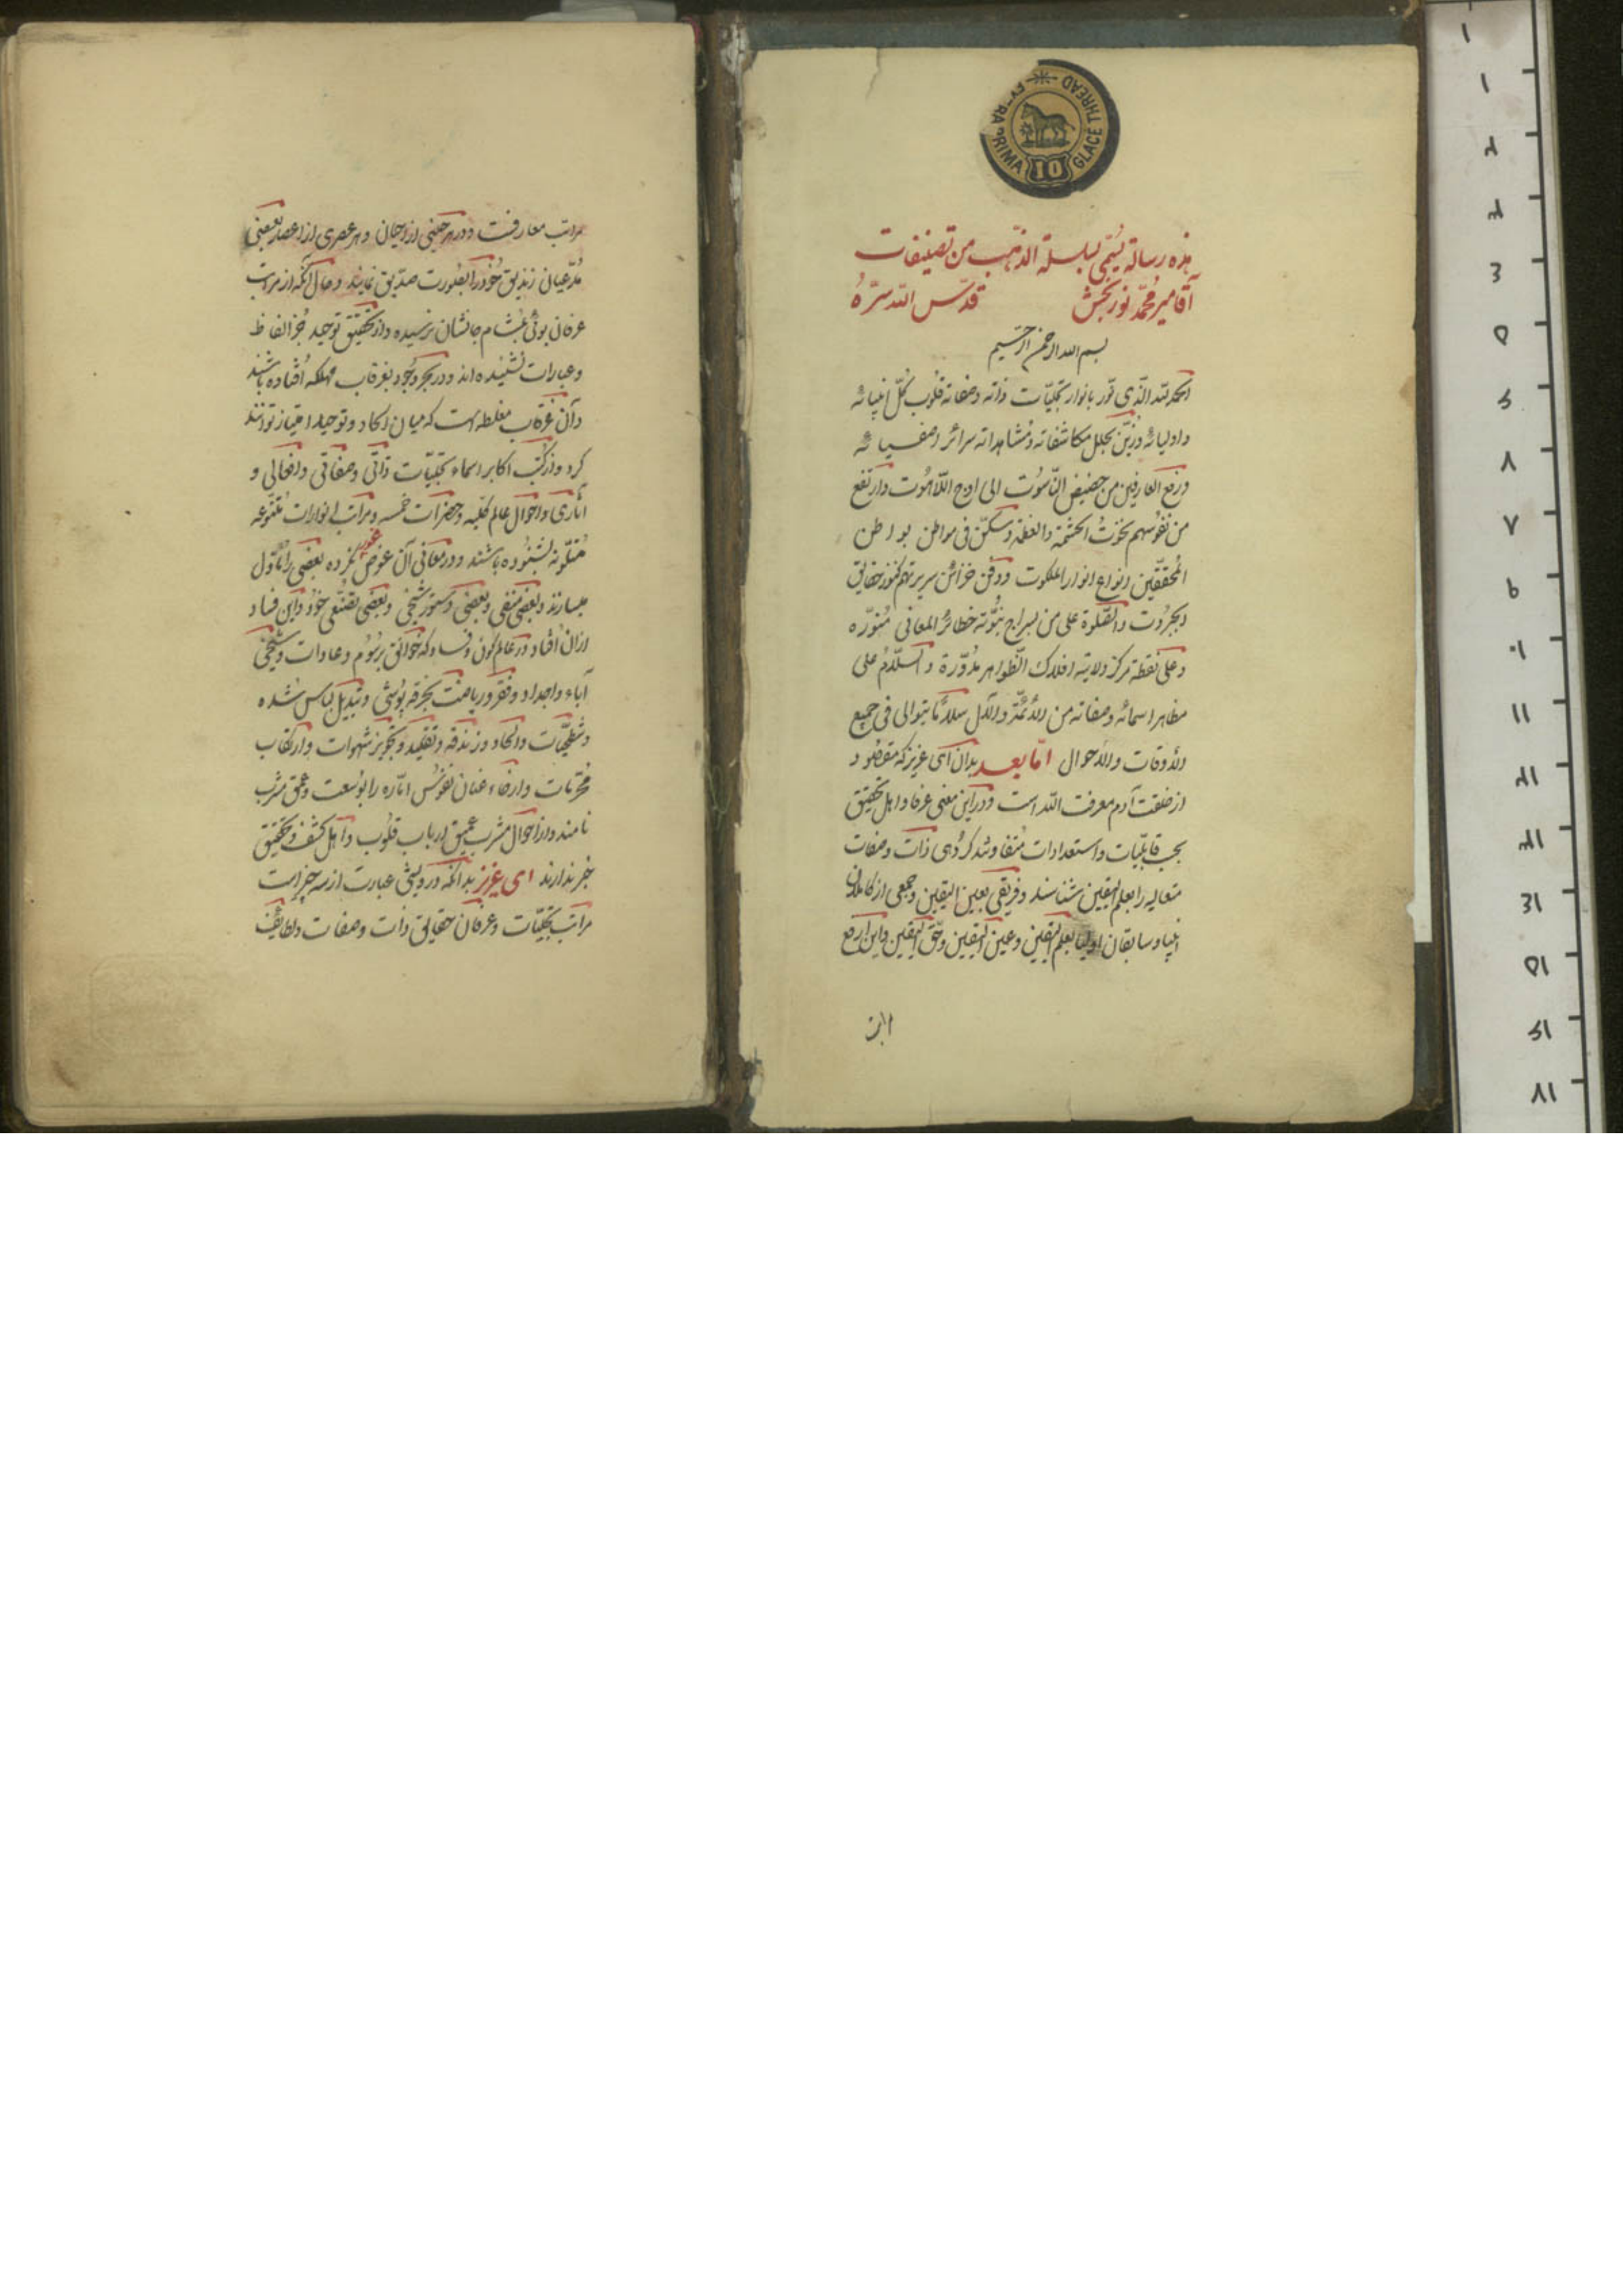 EXTRA PRIMA GLACE THREAD
10
هذه رسالة یسمی بسلسلة الذهب من تصنیفات
آقا میر محمد نوربخش قدس الله سره
بسم الله الرحمن الرحیم
الحمد لله الذی نور بانوار تجلیات ذاته وصفاته قلوب کل انبیائه
واولیائه وزین بحلل مکاشفاته ومشاهداته سرائر اصفیائه
ورفع العارفین من حضیض الناسوت الی اوج اللاهوت وارتفع
من نفوسهم نخوت الحشمة والعظمة وسکن فی مواطن بواطن
المحققین انواع انوار الملکوت ودفن خزائن سریرتهم کنوز حقایق
الجبروت والصلوة علی من بسراج نبوته خطائر المعانی منوره
وعلی نقطة مرکز ولایته افلاک الظواهر مدورة والسلام علی
مظاهر اسمائه وصفاته من الائمة والآل سلاما یتوالی فی جمیع
الاوقات والاحوال اما بعد بدان ای عزیز که مقصود
از خلقت آدم معرفت الله است ودر این معنی عرفا واهل تحقیق
بحسب قابلیات واستعدادات متفاوتند گروهی ذات وصفات
متعالیه را بعلم الیقین شناسند وفریقی بعین الیقین وجمعی از کاملان
انبیا وسابقان اولیا بعلم الیقین وعین الیقین وحق الیقین واین ارفع
مراتب معارفست ودر هر حینی از احیان وهر عصری از اعصار بعضی
مدعیان زندیق خود را بصورت صدیق نمایند وحال آنکه از مراتب
عرفان بوئی بمشام جانشان نرسیده واز تحقیق توحید جز الفاظ
وعبارات نشنیده اند ودر بحر وجود بغرقاب مهلکه افتاده باشند
وآن غرقاب مغلطه است که میان الحاد وتوحید امتیاز نتوانند
کرد واز کتب اکابر اسماء تجلیات ذاتی وصفاتی وافعالی و
آثاری واحوال عالم قلبیه وحضرات خمسه ومراتب انوارات متنوعه
متلونه بشنوده باشند ودر معانی آن غوص نکرده بعضی را مأول
میسازند وبعضی منفی وبعضی دستور شیخی وبعضی تصنعی خود واین فساد
ازان افتاد در عالم کون وفساد که خوانق برسوم وعادات وشیخی
آباء واجداد وفقر وریاضت بخرقه پوشی وتبدیل لباس شده
وشطحیات والحاد وزندقه وتقلید وتجویز شهوات وارتکاب
محرمات وارخاء عنان نفوس اماره را بوسعت وعمق مشرب
نامند واز احوال مشرب عمیق ارباب قلوب واهل کشف وتحقیق
خبر ندارند ای عزیز بدانکه درویشی عبارت از سه چیز است
مراتب تجلیات وعرفان حقایق ذات وصفات ولطایف